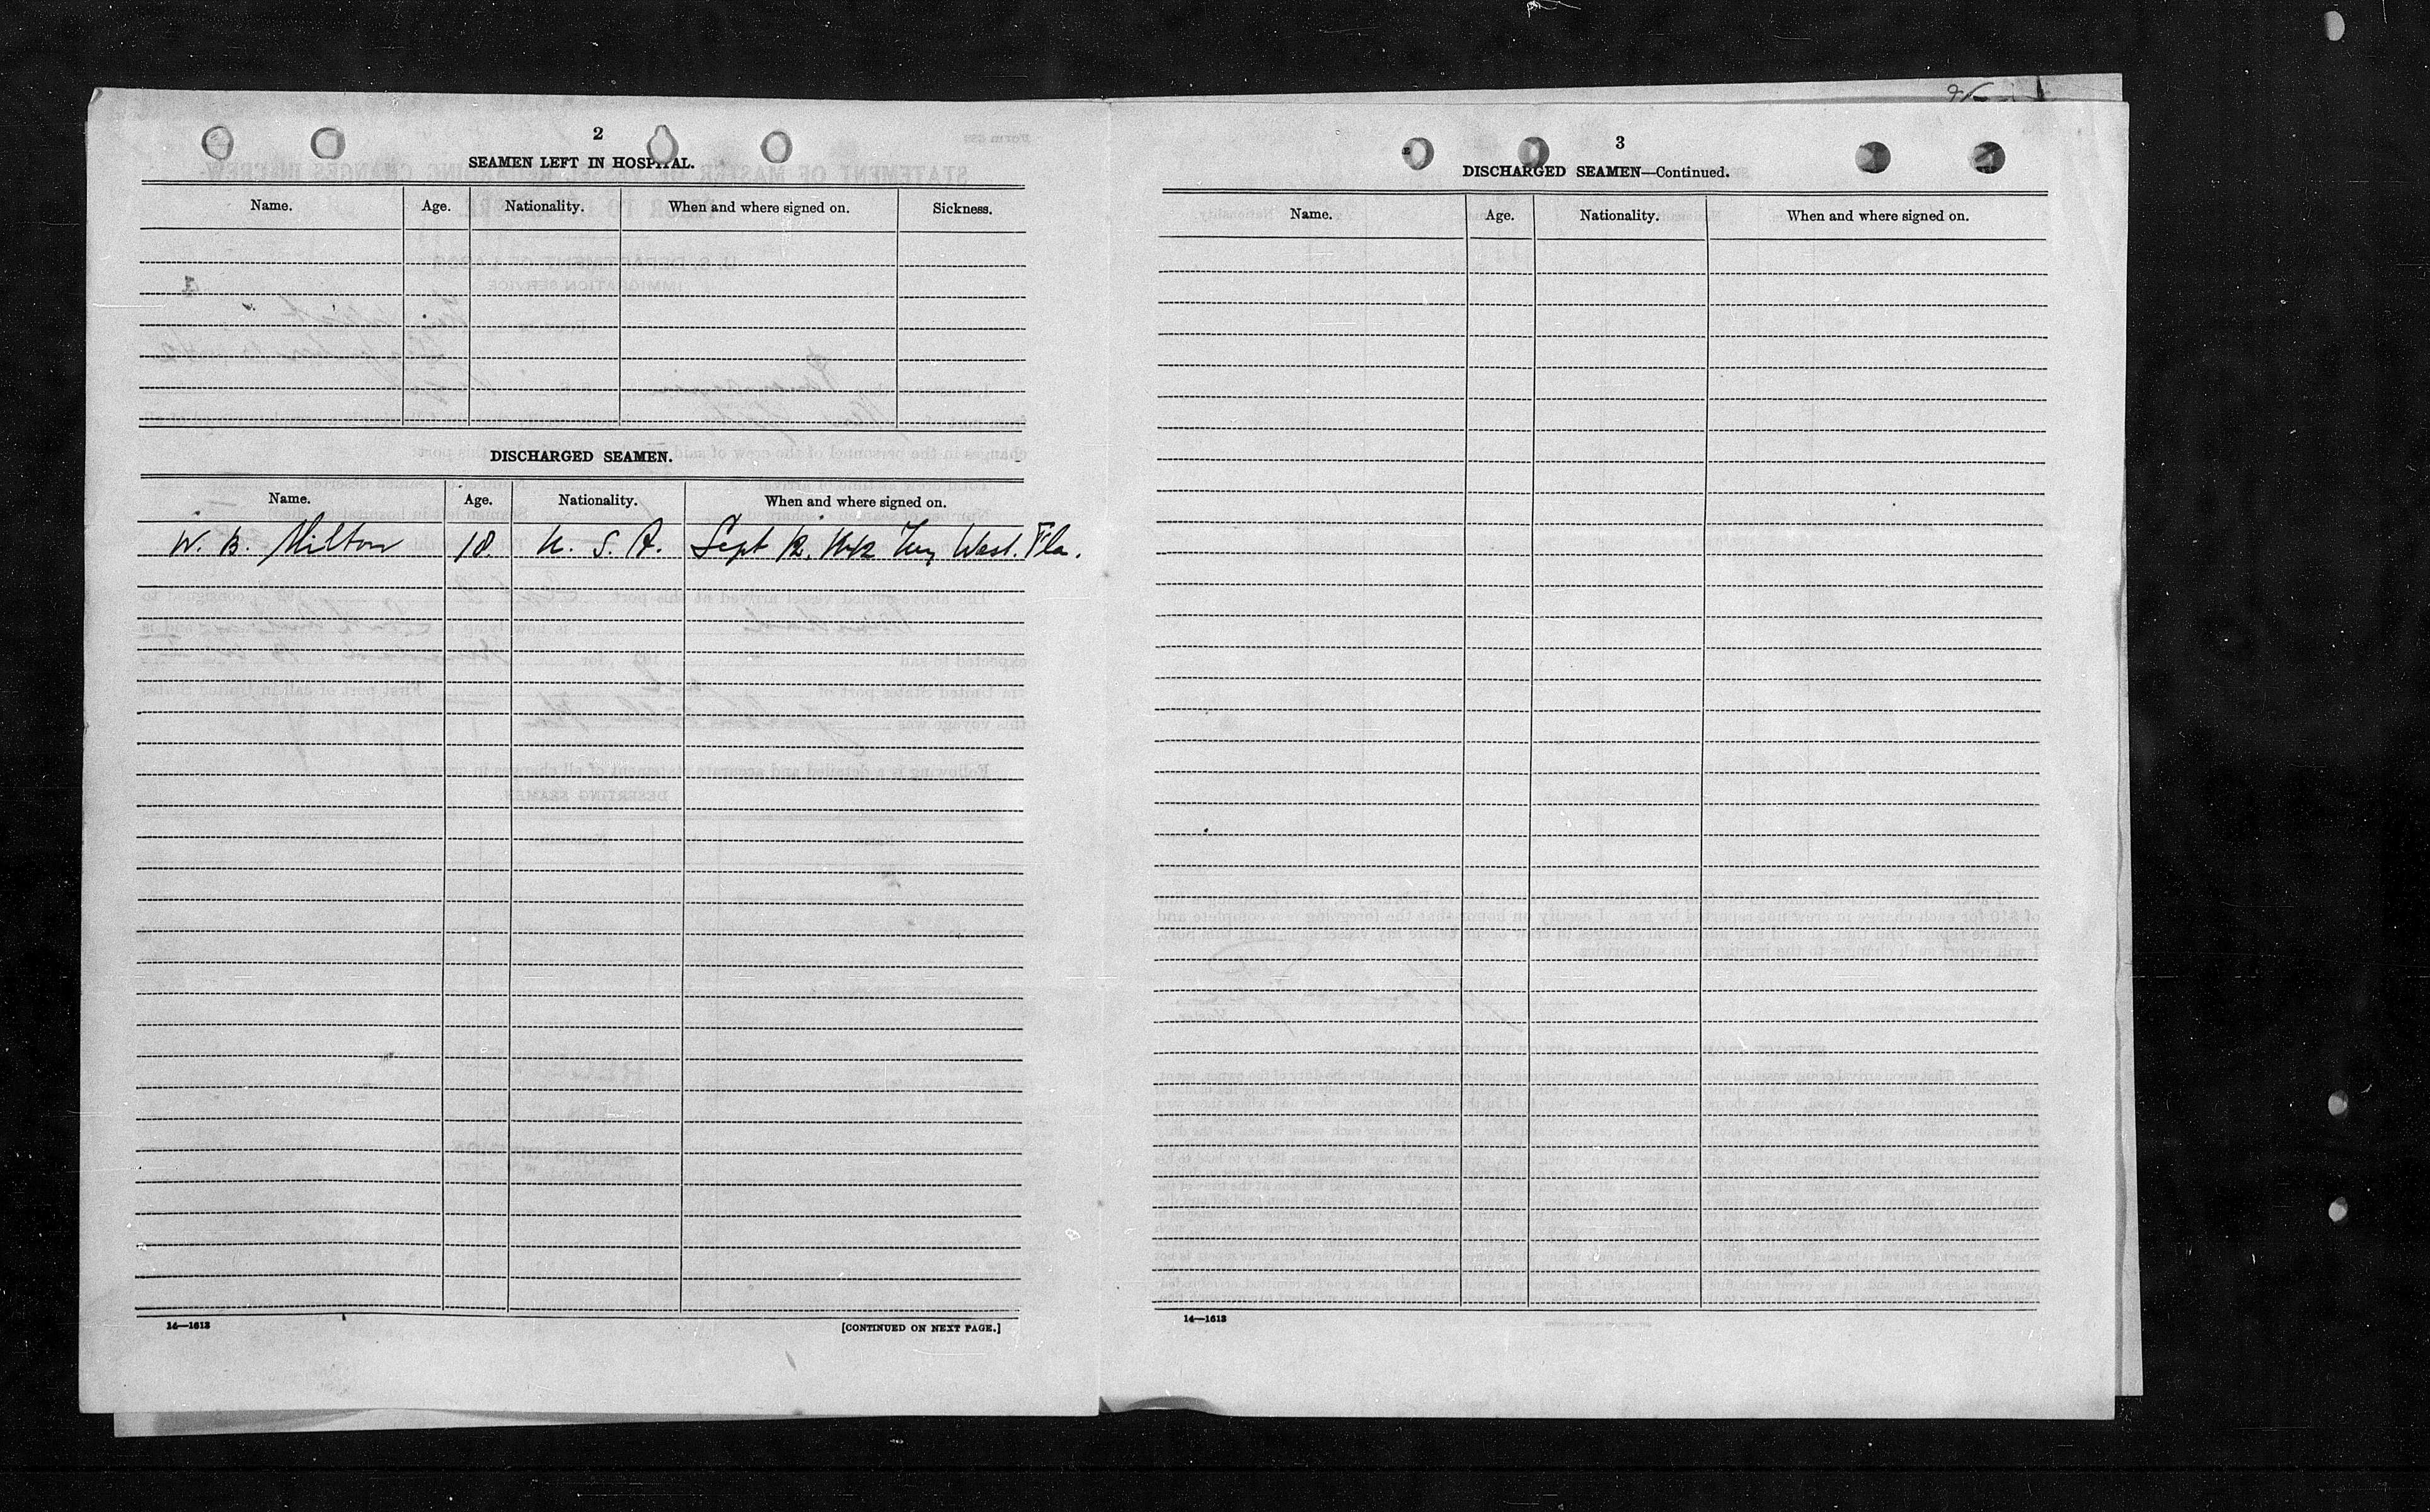 2
SEAMEN LEFT IN HOSPITAL.
Name. Age. Nationality. When and where signed on. Sickness.
DISCHARGED SEAMEN.
Name. Age. Nationality. When and where signed on.
W. B. Milton 18 U. S. A. Sept 12, West. Fla.
14—1613
[CONTINUED ON NEXT PAGE.]
3
DISCHARGED SEAMEN—Continued.
Name. Age. Nationality. When and where signed on.
14—1613